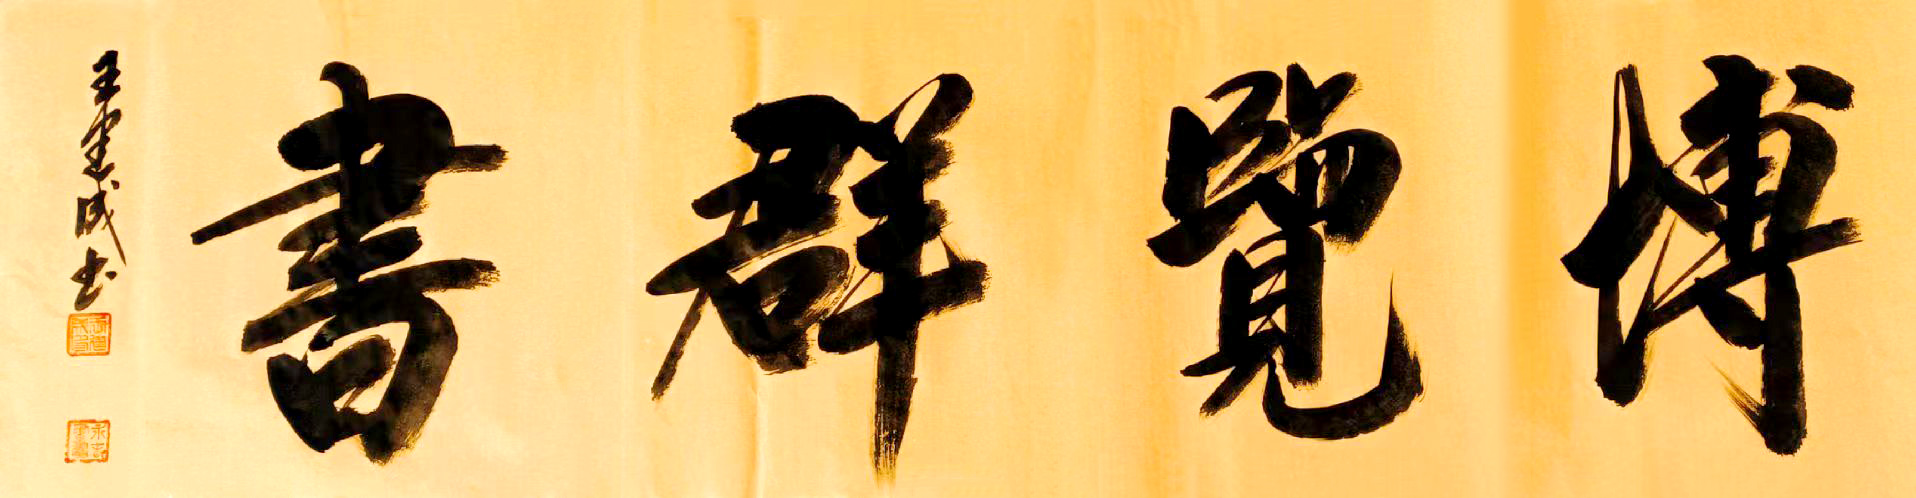 博覽群書
王憲成书